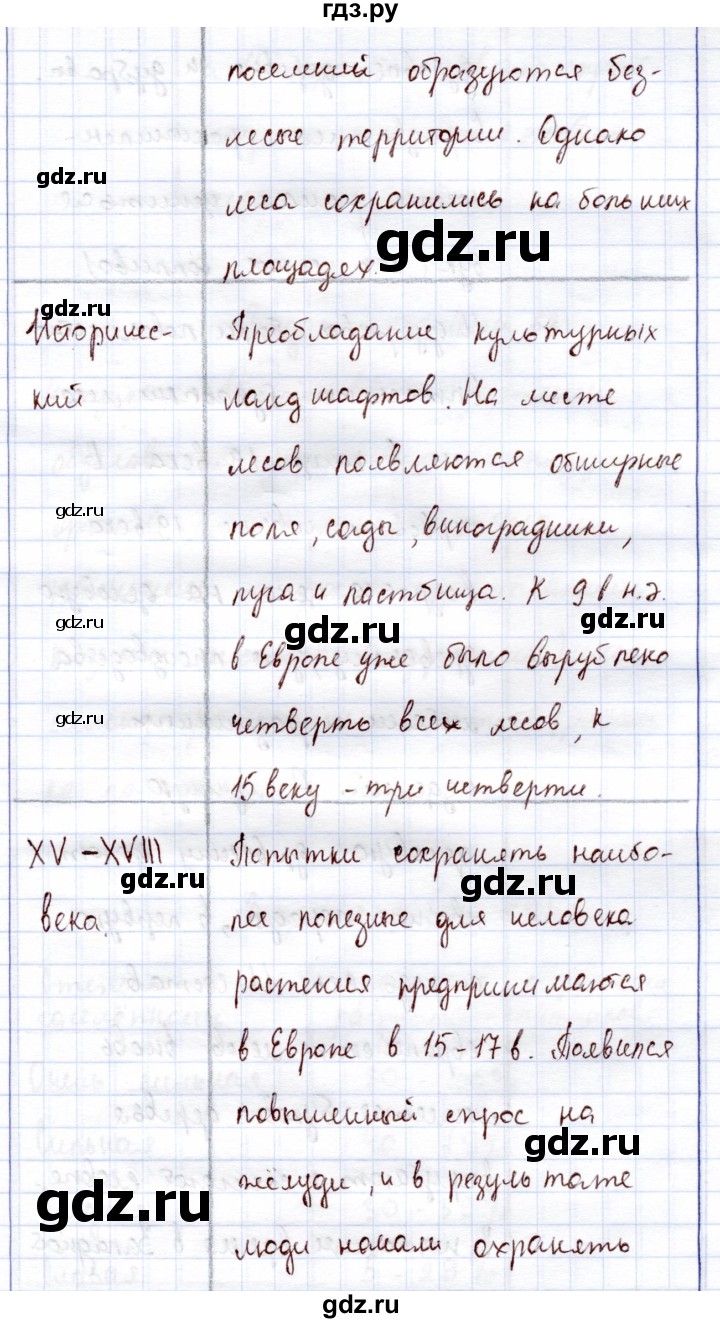 гдз.ру
поселений образуются без-
лесые территории. Однако
gdz.ru
леса сохранились на больших
gdz.ru
площадях.
gdz.ru
Историчес- Преобладание культурных
кий ландшафтов. На месте
лесов появляются обширные
gdz.ru
поля, сады, виноградники,
луга и пастбища. К 9 в н.э.
gdz.ru gdz.ru gdz.ru
в Европе уже было вырублено
gdz.ru
четверть всех лесов, к
15 веку - три четверти.
XV - XVIII Попытки сохранять наибо-
gdz.ru gdz.ru
века. лее полезные для человека
растения предпринимаются
в Европе в 15-17 в. Появился
повышенный спрос на
gdz.ru
жёлуди, и в результате
gdz.ru
люди начали охранять
gdz.ru